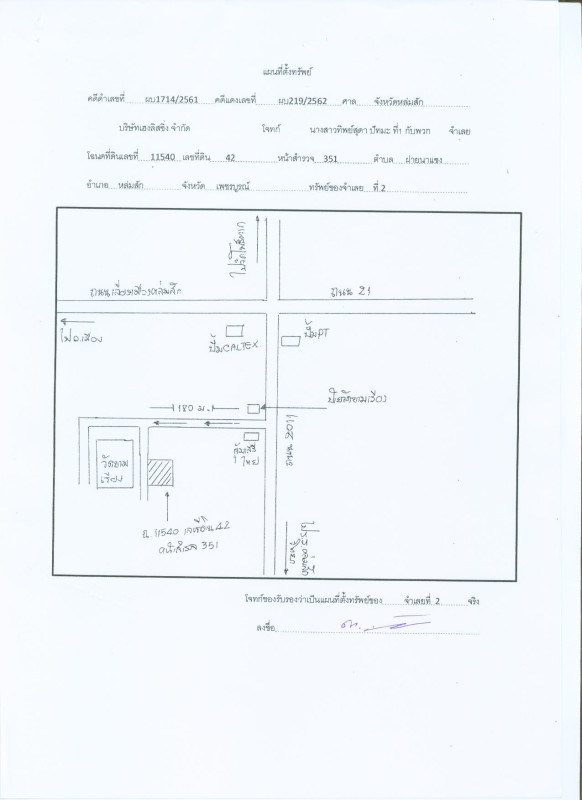 แผนที่ตั้งทรัพย์
คดีดำเลขที่ ผบ1714/2561 คดีแดงเลขที่ ผบ219/2562 ศาล จังหวัดหล่มสัก
บริษัทเฮงลิสซิ่ง จำกัด โจทก์ นางสาวทิพย์สุดา ปัทมะ ที่1 กับพวก จำเลย
โฉนดที่ดินเลขที่ 11540 เลขที่ดิน 42 หน้าสำรวจ 351 ตำบล ฝายนาแซง
อำเภอ หล่มสัก จังหวัด เพชรบูรณ์ ทรัพย์ของจำเลย ที่ 2
ถนนเลี่ยงเมืองหล่มสัก
ถนน 21
ไป อ.เมือง
ปั๊มCALTEX
ปั๊มPT
180 ม.
ถนน 2011
วัดอามเรือง
ฉ.11540 เลขที่ดิน 42
หน้าสำรวจ 351
โจทก์ขอรับรองว่าเป็นแผนที่ตั้งทรัพย์ของ จำเลยที่ 2 จริง
ลงชื่อ